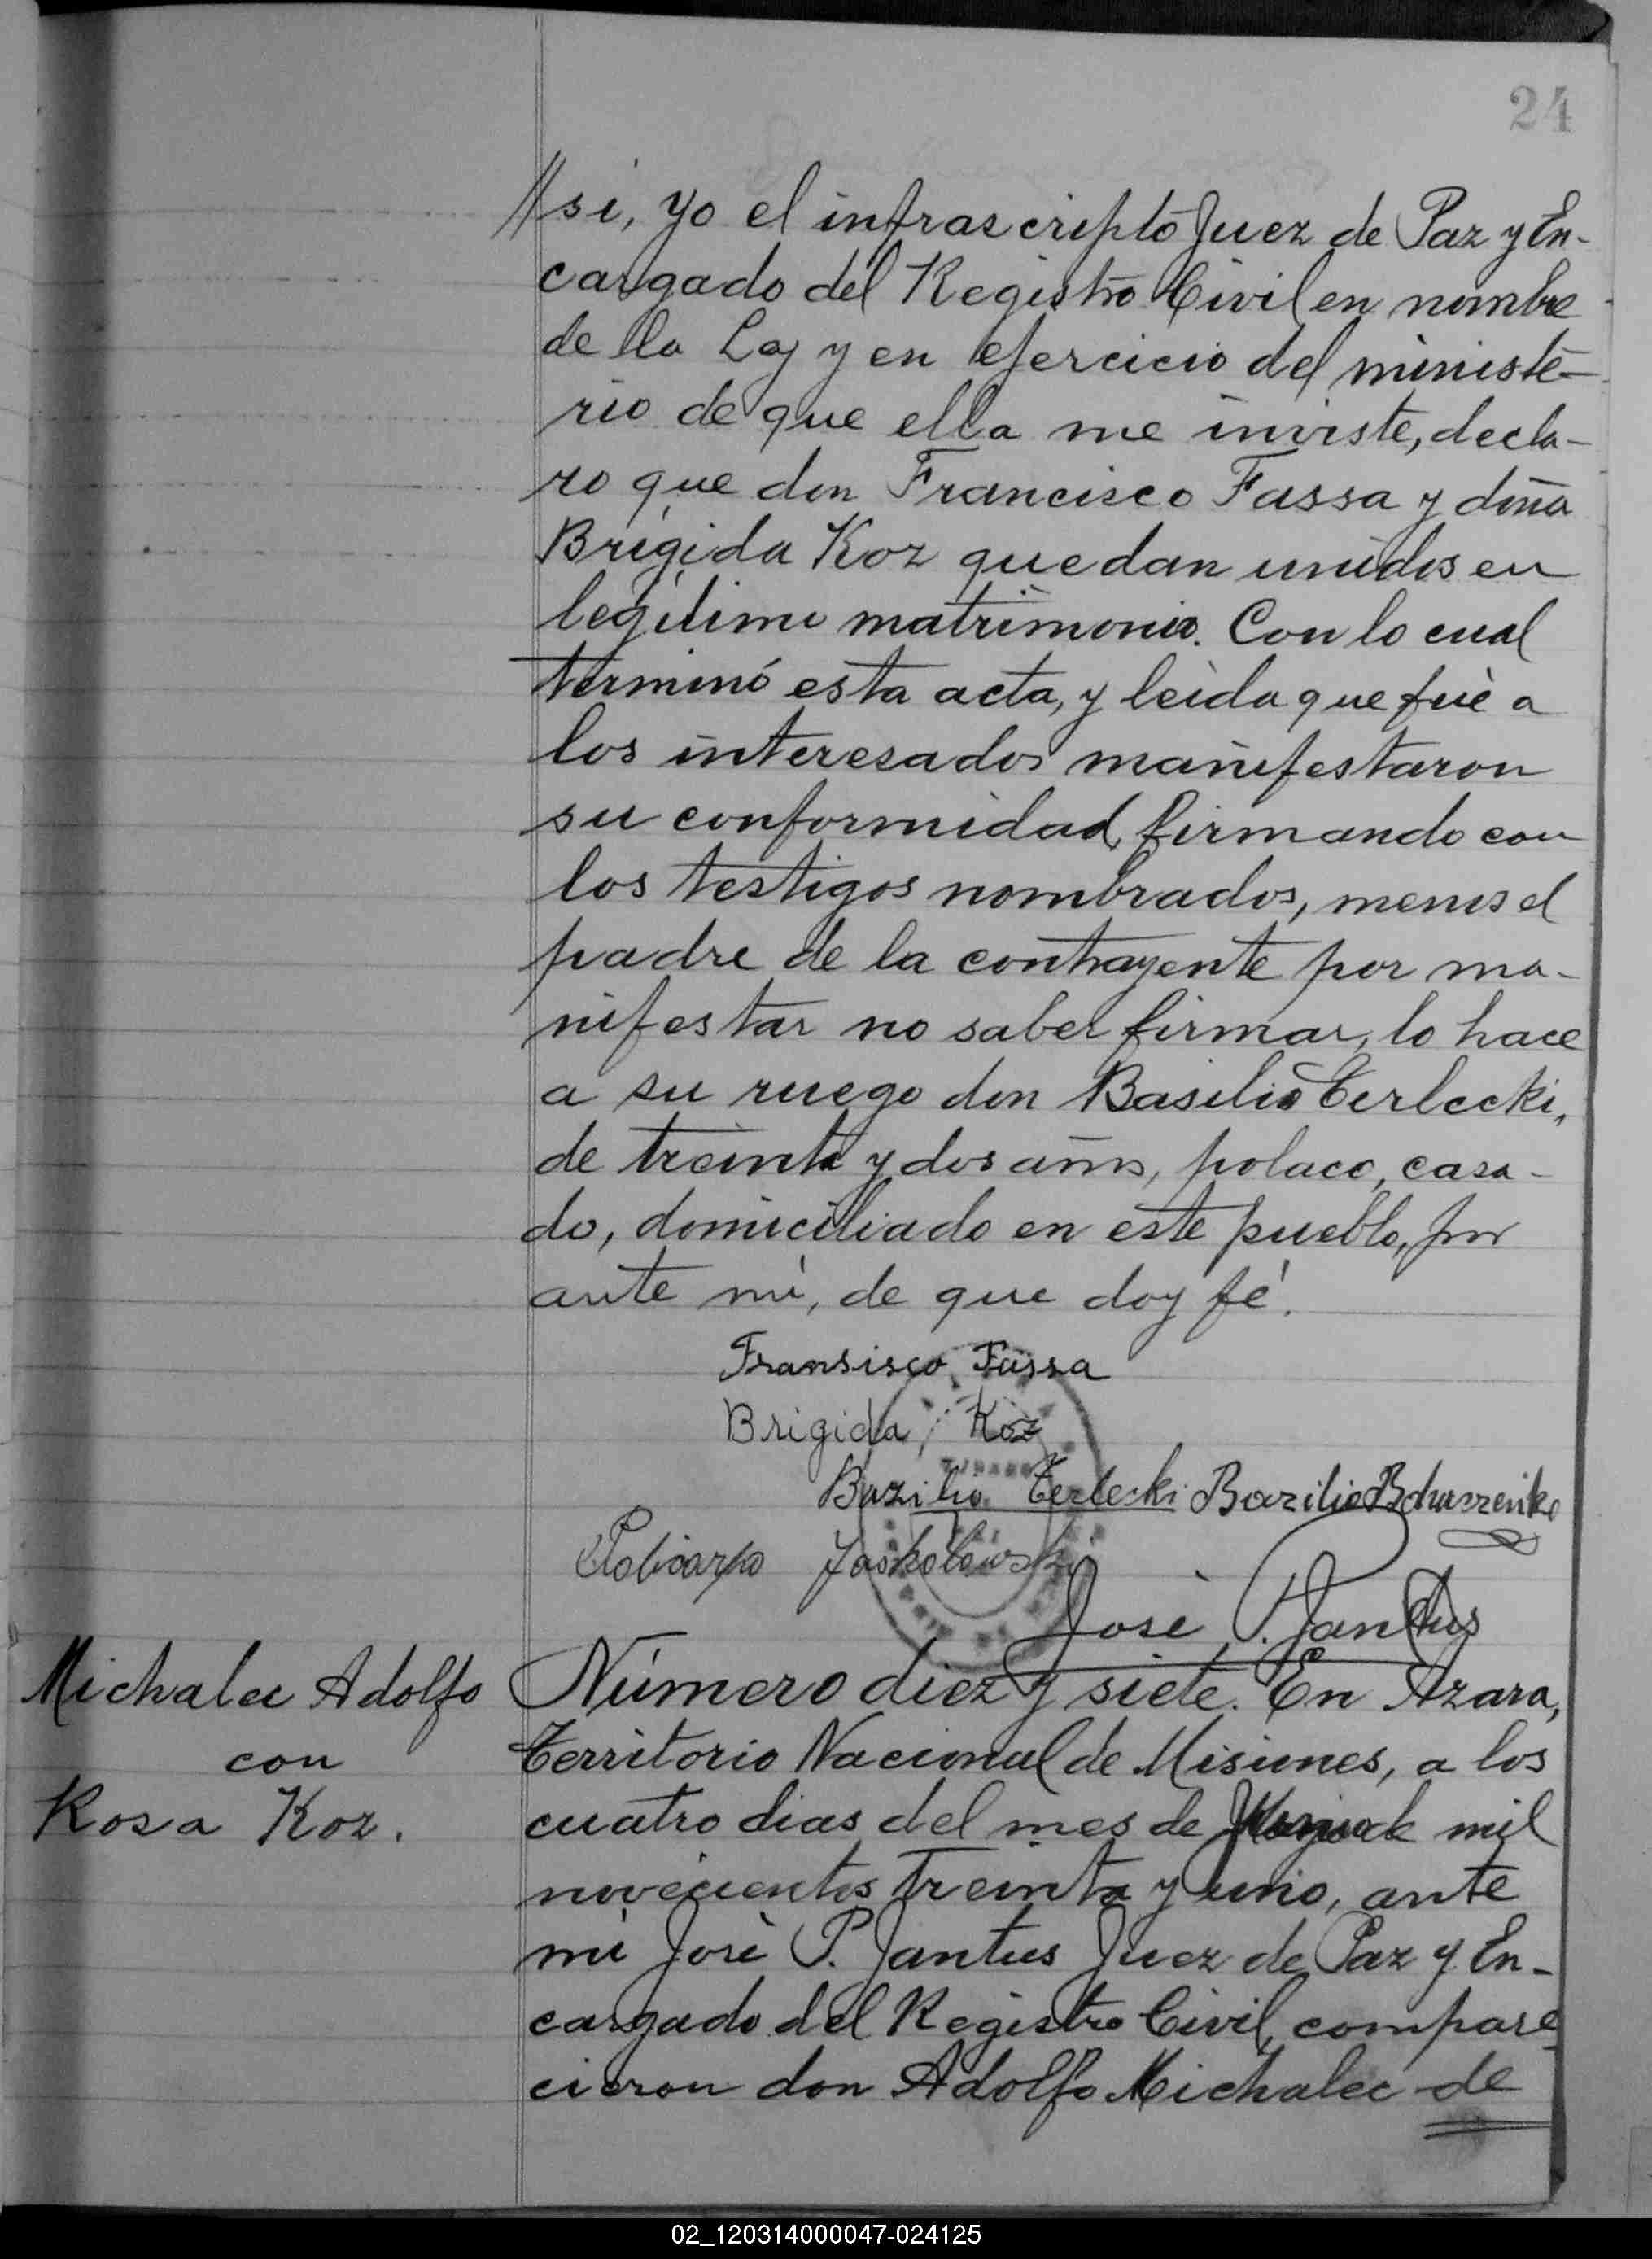 24
//si, yo el infrascripto Juez de Paz y En-
cargado del Registro Civil en nombre
de la Ley y en ejercicio del ministe-
rio de que ella me inviste, decla-
ro que don Francisco Fassa y doña
Brígida Koz quedan unidos en
legítimo matrimonio. Con lo cual
terminó esta acta, y leída que fué a
los interesados manifestaron
su conformidad, firmando con
los testigos nombrados, menos el
padre de la contrayente por ma-
nifestar no saber firmar, lo hace
a su ruego don Basilio Terlecki,
de treinta y dos años, polaco, casa-
do, domiciliado en este pueblo, por
ante mí, de que doy fé.
Fransisco Fassa
Brigida Koz
Bazilio Terlecki Bazilio
Policarpo Jaskolowski
José P. Jantus
Michalec Adolfo
con
Rosa Koz.
Número diez y siete. En Azara,
Territorio Nacional de Misiones, a los
cuatro dias del mes de mil
novecientos treinta y uno, ante
mí José P. Jantus Juez de Paz y En-
cargado del Registro Civil, compare
cieron don Adolfo Michalec de
02_120314000047-024125